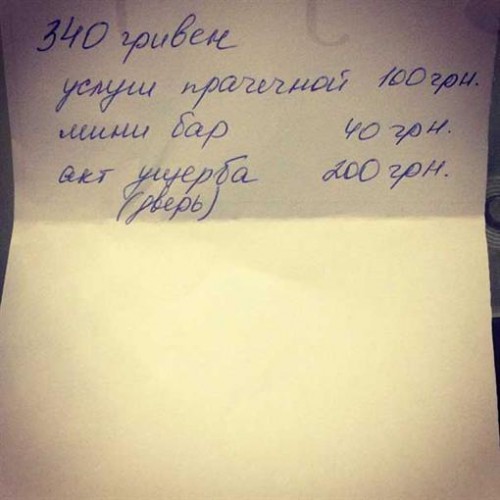 340 гривен
услуги прачечной 100 грн.
мини бар 40 грн.
акт ущерба 200 грн.
(дверь)